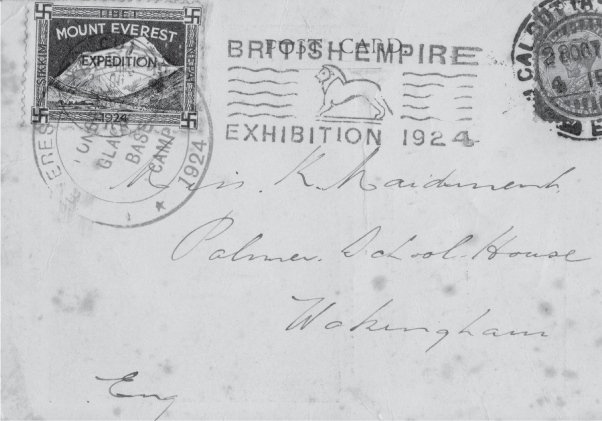 TIBET
MOUNT EVEREST
EXPEDITION
1924
POST CARD
BRITISH EMPIRE
EXHIBITION 1924
CALCUTTA
OCT
BASE
CAMP
1924
Miss. K. Maidment
Palmer. School. House
Wokingham
Eng